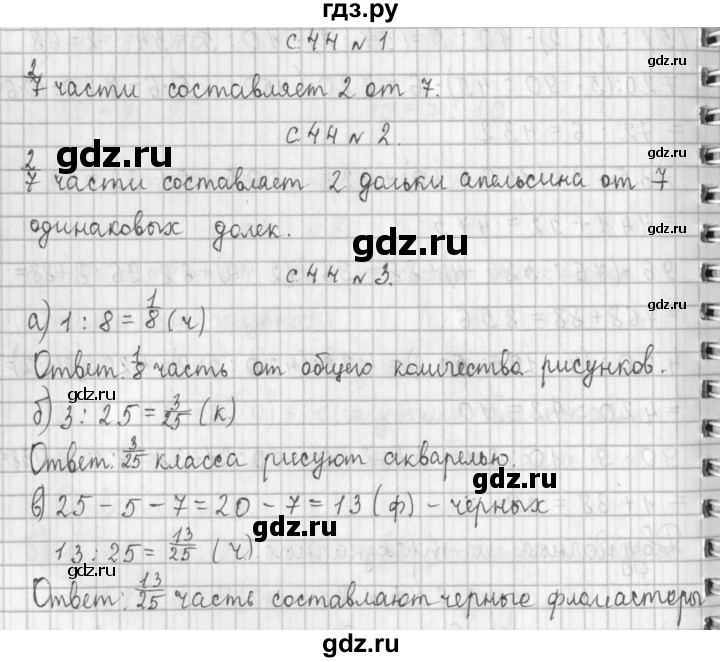 гдз.ру
с. 44 № 1.
gdz.ru
2/7 части составляет 2 от 7.
с. 44 № 2.
gdz.ru
gdz.ru
2/7 части составляет 2 дольки апельсина от 7
одинаковых долек.
gdz.ru
gdz.ru
с. 44 № 3.
gdz.ru
а) 1 : 8 = 1/8 (ч)
Ответ: 1/8 часть от общего количества рисунков.
gdz.ru
б) 3 : 25 = 3/25 (к)
gdz.ru
Ответ: 3/25 класса рисуют акварелью.
gdz.ru
в) 25 - 5 - 7 = 20 - 7 = 13 (ф) - чёрных
gdz.ru
13 : 25 = 13/25 (ч)
gdz.ru
gdz.ru
Ответ: 13/25 часть составляют черные фломастеры
gdz.ru